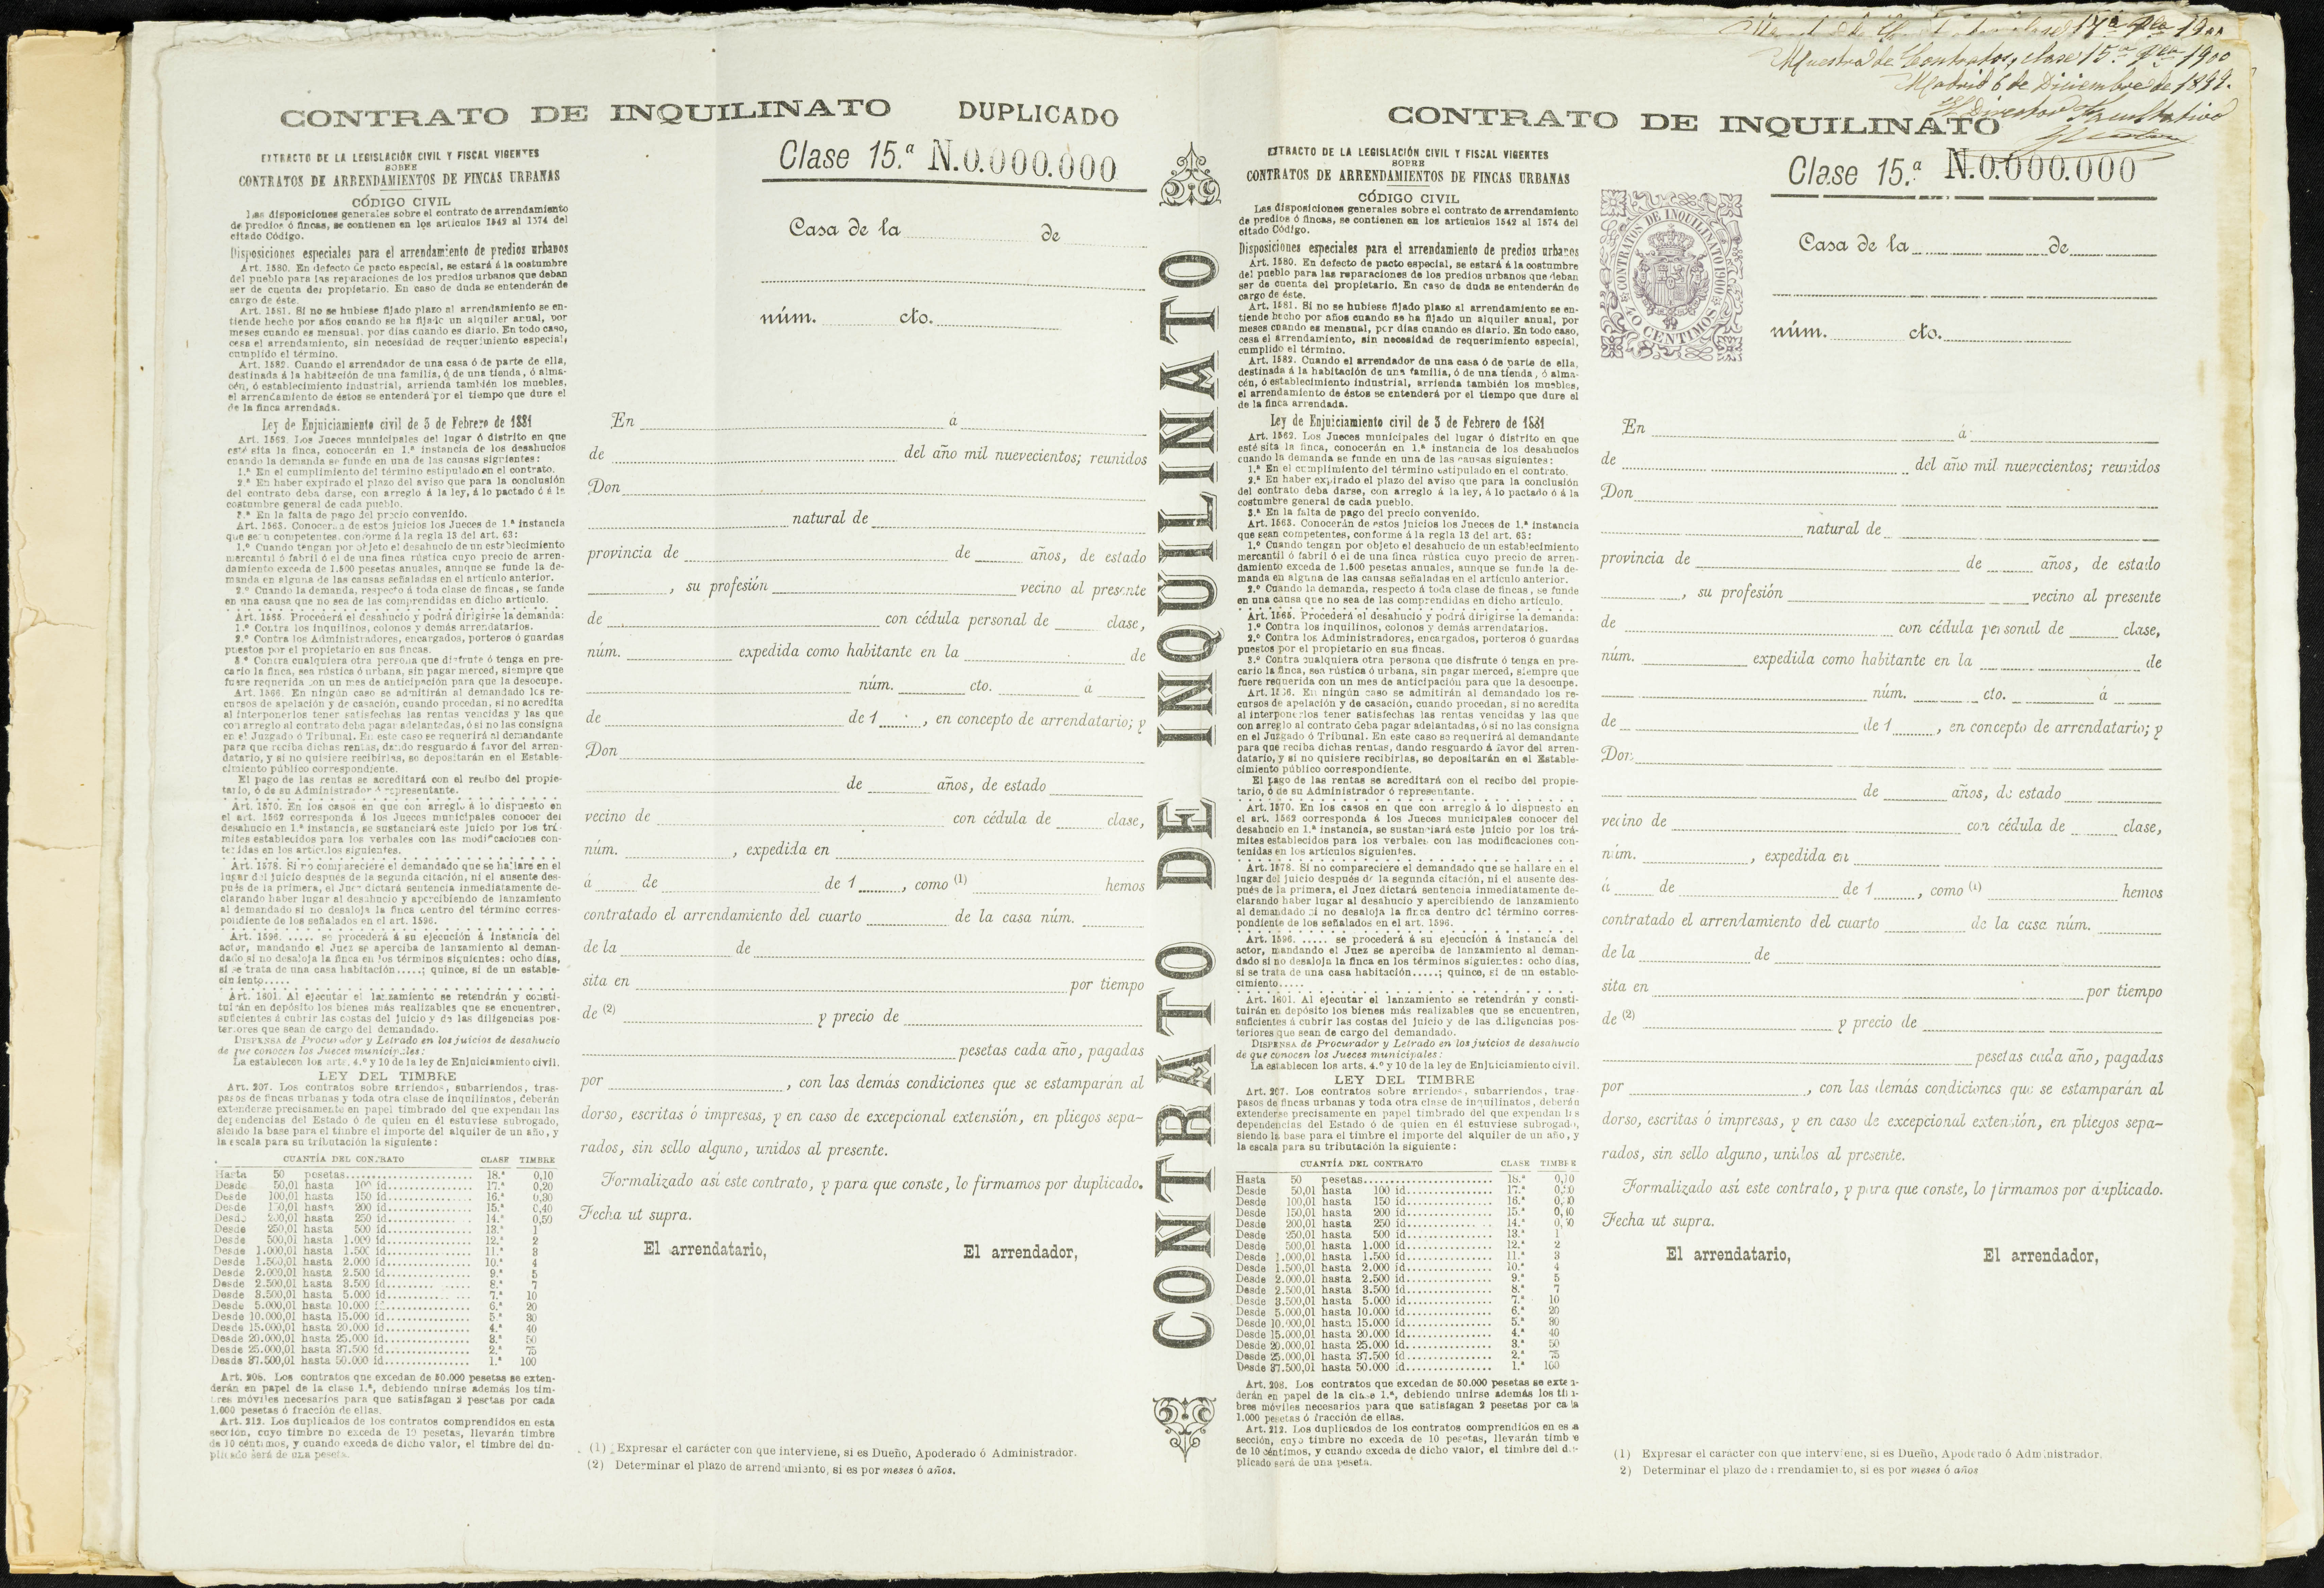 Muestra de Contratos, clase 15ª 1900
Madrid 6 de Diciembre de 1899.
El Director Facultativo
CONTRATO DE INQUILINATO DUPLICADO
Clase 15.ª N.0.000.000
EXTRACTO DE LA LEGISLACIÓN CIVIL Y FISCAL VIGENTES
SOBRE
CONTRATOS DE ARRENDAMIENTOS DE FINCAS URBANAS
CÓDIGO CIVIL
Las disposiciones generales sobre el contrato de arrendamiento
de predios ó fincas, se contienen en los artículos 1542 al 1574 del
citado Código.
Disposiciones especiales para el arrendamiento de predios urbanos
Art. 1580. En defecto de pacto especial, se estará á la costumbre
del pueblo para las reparaciones de los predios urbanos que deban
ser de cuenta del propietario. En caso de duda se entenderán de
cargo de éste.
Art. 1581. Si no se hubiese fijado plazo al arrendamiento se en-
tiende hecho por años cuando se ha fijado un alquiler anual, por
meses cuando es mensual, por días cuando es diario. En todo caso,
cesa el arrendamiento, sin necesidad de requerimiento especial,
cumplido el término.
Art. 1582. Cuando el arrendador de una casa ó de parte de ella,
destinada á la habitación de una familia, ó de una tienda, ó alma-
cén, ó establecimiento industrial, arrienda también los muebles,
el arrendamiento de éstos se entenderá por el tiempo que dure el
de la finca arrendada.
Ley de Enjuiciamiento civil de 3 de Febrero de 1881
Art. 1562. Los Jueces municipales del lugar ó distrito en que
esté sita la finca, conocerán en 1.ª instancia de los desahucios
cuando la demanda se funde en una de las causas siguientes:
1.ª En el cumplimiento del término estipulado en el contrato.
2.ª En haber expirado el plazo del aviso que para la conclusión
del contrato deba darse, con arreglo á la ley, á lo pactado ó á la
costumbre general de cada pueblo.
3.ª En la falta de pago del precio convenido.
Art. 1563. Conocerán de estos juicios los Jueces de 1.ª instancia
que sean competentes, conforme á la regla 13 del art. 63:
1.º Cuando tengan por objeto el desahucio de un establecimiento
mercantil ó fabril ó el de una finca rústica cuyo precio de arren-
damiento exceda de 1.500 pesetas anuales, aunque se funde la de-
manda en alguna de las causas señaladas en el artículo anterior.
2.º Cuando la demanda, respecto á toda clase de fincas, se funde
en una causa que no sea de las comprendidas en dicho artículo.
Art. 1565. Procederá el desahucio y podrá dirigirse la demanda:
1.º Contra los inquilinos, colonos y demás arrendatarios.
2.º Contra los Administradores, encargados, porteros ó guardas
puestos por el propietario en sus fincas.
3.º Contra cualquiera otra persona que disfrute ó tenga en pre-
cario la finca, sea rústica ó urbana, sin pagar merced, siempre que
fuere requerida con un mes de anticipación para que la desocupe.
Art. 1566. En ningún caso se admitirán al demandado los re-
cursos de apelación y de casación, cuando procedan, si no acredita
al interponerlos tener satisfechas las rentas vencidas y las que
con arreglo al contrato deba pagar adelantadas, ó si no las consigna
en el Juzgado ó Tribunal. En este caso se requerirá al demandante
para que reciba dichas rentas, dando resguardo á favor del arren-
datario, y si no quisiere recibirlas, se depositarán en el Estable-
cimiento público correspondiente.
El pago de las rentas se acreditará con el recibo del propie-
tario, ó de su Administrador ó representante.
Art. 1570. En los casos en que con arreglo á lo dispuesto en
el art. 1562 corresponda á los Jueces municipales conocer del
desahucio en 1.ª instancia, se sustanciará este juicio por los trá-
mites establecidos para los verbales con las modificaciones con-
tenidas en los artículos siguientes.
Art. 1578. Si no compareciere el demandado que se hallare en el
lugar del juicio después de la segunda citación, ni el ausente des-
pués de la primera, el Juez dictará sentencia inmediatamente de-
clarando haber lugar al desahucio y apercibiendo de lanzamiento
al demandado si no desaloja la finca dentro del término corres-
pondiente de los señalados en el art. 1596.
Art. 1596. ..... se procederá á su ejecución á instancia del
actor, mandando el Juez se aperciba de lanzamiento al deman-
dado si no desaloja la finca en los términos siguientes: ocho días,
si se trata de una casa habitación.....; quince, si de un estable-
cimiento.....
Art. 1601. Al ejecutar el lanzamiento se retendrán y consti-
tuirán en depósito los bienes más realizables que se encuentren,
suficientes á cubrir las costas del juicio y de las diligencias pos-
teriores que sean de cargo del demandado.
DISPENSA de Procurador y Letrado en los juicios de desahucio
de que conocen los Jueces municipales:
La establecen los arts. 4.º y 10 de la ley de Enjuiciamiento civil.
LEY DEL TIMBRE
Art. 207. Los contratos sobre arriendos, subarriendos, tras-
pasos de fincas urbanas y toda otra clase de inquilinatos, deberán
extenderse precisamente en papel timbrado del que expendan las
dependencias del Estado ó de quien en él estuviese subrogado,
siendo la base para el timbre el importe del alquiler de un año, y
la escala para su tributación la siguiente:
CUANTÍA DEL CONTRATO CLASE TIMBRE
Hasta 50 pesetas 18.ª 0,10
Desde 50,01 hasta 100 id. 17.ª 0,20
Desde 100,01 hasta 150 id. 16.ª 0,30
Desde 150,01 hasta 200 id. 15.ª 0,40
Desde 200,01 hasta 250 id. 14.ª 0,50
Desde 250,01 hasta 500 id. 13.ª 1
Desde 500,01 hasta 1.000 id. 12.ª 2
Desde 1.000,01 hasta 1.500 id. 11.ª 3
Desde 1.500,01 hasta 2.000 id. 10.ª 4
Desde 2.000,01 hasta 2.500 id. 9.ª 5
Desde 2.500,01 hasta 3.500 id. 8.ª 7
Desde 3.500,01 hasta 5.000 id. 7.ª 10
Desde 5.000,01 hasta 10.000 id. 6.ª 20
Desde 10.000,01 hasta 15.000 id. 5.ª 30
Desde 15.000,01 hasta 20.000 id. 4.ª 40
Desde 20.000,01 hasta 25.000 id. 3.ª 50
Desde 25.000,01 hasta 37.500 id. 2.ª 75
Desde 37.500,01 hasta 50.000 id. 1.ª 100
Art. 208. Los contratos que excedan de 50.000 pesetas se exten-
derán en papel de la clase 1.ª, debiendo unirse además los tim-
bres móviles necesarios para que satisfagan 2 pesetas por cada
1.000 pesetas ó fracción de ellas.
Art. 212. Los duplicados de los contratos comprendidos en esta
sección, cuyo timbre no exceda de 10 pesetas, llevarán timbre
de 10 céntimos, y cuando exceda de dicho valor, el timbre del du-
plicado será de una peseta.
Casa de la de
núm. cto.
En á
de del año mil nuevecientos; reunidos
Don
natural de
provincia de de años, de estado
, su profesión vecino al presente
de con cédula personal de clase,
núm. expedida como habitante en la de
núm. cto. á
de de 1 , en concepto de arrendatario; y
Don
de años, de estado
vecino de con cédula de clase,
núm. , expedida en
á de de 1 , como (1) hemos
contratado el arrendamiento del cuarto de la casa núm.
de la de
sita en por tiempo
de (2) y precio de
pesetas cada año, pagadas
por , con las demás condiciones que se estamparán al
dorso, escritas ó impresas, y en caso de excepcional extensión, en pliegos sepa-
rados, sin sello alguno, unidos al presente.
Formalizado así este contrato, y para que conste, lo firmamos por duplicado.
Fecha ut supra.
El arrendatario, El arrendador,
(1) Expresar el carácter con que interviene, si es Dueño, Apoderado ó Administrador.
(2) Determinar el plazo de arrendamiento, si es por meses ó años.
CONTRATO DE INQUILINATO
CONTRATO DE INQUILINATO
Clase 15.ª N.0.000.000
EXTRACTO DE LA LEGISLACIÓN CIVIL Y FISCAL VIGENTES
SOBRE
CONTRATOS DE ARRENDAMIENTOS DE FINCAS URBANAS
CÓDIGO CIVIL
Las disposiciones generales sobre el contrato de arrendamiento
de predios ó fincas, se contienen en los artículos 1542 al 1574 del
citado Código.
Disposiciones especiales para el arrendamiento de predios urbanos
Art. 1580. En defecto de pacto especial, se estará á la costumbre
del pueblo para las reparaciones de los predios urbanos que deban
ser de cuenta del propietario. En caso de duda se entenderán de
cargo de éste.
Art. 1581. Si no se hubiese fijado plazo al arrendamiento se en-
tiende hecho por años cuando se ha fijado un alquiler anual, por
meses cuando es mensual, por días cuando es diario. En todo caso,
cesa el arrendamiento, sin necesidad de requerimiento especial,
cumplido el término.
Art. 1582. Cuando el arrendador de una casa ó de parte de ella,
destinada á la habitación de una familia, ó de una tienda, ó alma-
cén, ó establecimiento industrial, arrienda también los muebles,
el arrendamiento de éstos se entenderá por el tiempo que dure el
de la finca arrendada.
Ley de Enjuiciamiento civil de 3 de Febrero de 1881
Art. 1562. Los Jueces municipales del lugar ó distrito en que
esté sita la finca, conocerán en 1.ª instancia de los desahucios
cuando la demanda se funde en una de las causas siguientes:
1.ª En el cumplimiento del término estipulado en el contrato.
2.ª En haber expirado el plazo del aviso que para la conclusión
del contrato deba darse, con arreglo á la ley, á lo pactado ó á la
costumbre general de cada pueblo.
3.ª En la falta de pago del precio convenido.
Art. 1563. Conocerán de estos juicios los Jueces de 1.ª instancia
que sean competentes, conforme á la regla 13 del art. 63:
1.º Cuando tengan por objeto el desahucio de un establecimiento
mercantil ó fabril ó el de una finca rústica cuyo precio de arren-
damiento exceda de 1.500 pesetas anuales, aunque se funde la de-
manda en alguna de las causas señaladas en el artículo anterior.
2.º Cuando la demanda, respecto á toda clase de fincas, se funde
en una causa que no sea de las comprendidas en dicho artículo.
Art. 1565. Procederá el desahucio y podrá dirigirse la demanda:
1.º Contra los inquilinos, colonos y demás arrendatarios.
2.º Contra los Administradores, encargados, porteros ó guardas
puestos por el propietario en sus fincas.
3.º Contra cualquiera otra persona que disfrute ó tenga en pre-
cario la finca, sea rústica ó urbana, sin pagar merced, siempre que
fuere requerida con un mes de anticipación para que la desocupe.
Art. 1566. En ningún caso se admitirán al demandado los re-
cursos de apelación y de casación, cuando procedan, si no acredita
al interponerlos tener satisfechas las rentas vencidas y las que
con arreglo al contrato deba pagar adelantadas, ó si no las consigna
en el Juzgado ó Tribunal. En este caso se requerirá al demandante
para que reciba dichas rentas, dando resguardo á favor del arren-
datario, y si no quisiere recibirlas, se depositarán en el Estable-
cimiento público correspondiente.
El pago de las rentas se acreditará con el recibo del propie-
tario, ó de su Administrador ó representante.
Art. 1570. En los casos en que con arreglo á lo dispuesto en
el art. 1562 corresponda á los Jueces municipales conocer del
desahucio en 1.ª instancia, se sustanciará este juicio por los trá-
mites establecidos para los verbales con las modificaciones con-
tenidas en los artículos siguientes.
Art. 1578. Si no compareciere el demandado que se hallare en el
lugar del juicio después de la segunda citación, ni el ausente des-
pués de la primera, el Juez dictará sentencia inmediatamente de-
clarando haber lugar al desahucio y apercibiendo de lanzamiento
al demandado si no desaloja la finca dentro del término corres-
pondiente de los señalados en el art. 1596.
Art. 1596. ..... se procederá á su ejecución á instancia del
actor, mandando el Juez se aperciba de lanzamiento al deman-
dado si no desaloja la finca en los términos siguientes: ocho días,
si se trata de una casa habitación.....; quince, si de un estable-
cimiento.....
Art. 1601. Al ejecutar el lanzamiento se retendrán y consti-
tuirán en depósito los bienes más realizables que se encuentren,
suficientes á cubrir las costas del juicio y de las diligencias pos-
teriores que sean de cargo del demandado.
DISPENSA de Procurador y Letrado en los juicios de desahucio
de que conocen los Jueces municipales:
La establecen los arts. 4.º y 10 de la ley de Enjuiciamiento civil.
LEY DEL TIMBRE
Art. 207. Los contratos sobre arriendos, subarriendos, tras-
pasos de fincas urbanas y toda otra clase de inquilinatos, deberán
extenderse precisamente en papel timbrado del que expendan las
dependencias del Estado ó de quien en él estuviese subrogado,
siendo la base para el timbre el importe del alquiler de un año, y
la escala para su tributación la siguiente:
CUANTÍA DEL CONTRATO CLASE TIMBRE
Hasta 50 pesetas 18.ª 0,10
Desde 50,01 hasta 100 id. 17.ª 0,20
Desde 100,01 hasta 150 id. 16.ª 0,30
Desde 150,01 hasta 200 id. 15.ª 0,40
Desde 200,01 hasta 250 id. 14.ª 0,50
Desde 250,01 hasta 500 id. 13.ª 1
Desde 500,01 hasta 1.000 id. 12.ª 2
Desde 1.000,01 hasta 1.500 id. 11.ª 3
Desde 1.500,01 hasta 2.000 id. 10.ª 4
Desde 2.000,01 hasta 2.500 id. 9.ª 5
Desde 2.500,01 hasta 3.500 id. 8.ª 7
Desde 3.500,01 hasta 5.000 id. 7.ª 10
Desde 5.000,01 hasta 10.000 id. 6.ª 20
Desde 10.000,01 hasta 15.000 id. 5.ª 30
Desde 15.000,01 hasta 20.000 id. 4.ª 40
Desde 20.000,01 hasta 25.000 id. 3.ª 50
Desde 25.000,01 hasta 37.500 id. 2.ª 75
Desde 37.500,01 hasta 50.000 id. 1.ª 100
Art. 208. Los contratos que excedan de 50.000 pesetas se exten-
derán en papel de la clase 1.ª, debiendo unirse además los tim-
bres móviles necesarios para que satisfagan 2 pesetas por cada
1.000 pesetas ó fracción de ellas.
Art. 212. Los duplicados de los contratos comprendidos en esta
sección, cuyo timbre no exceda de 10 pesetas, llevarán timbre
de 10 céntimos, y cuando exceda de dicho valor, el timbre del du-
plicado será de una peseta.
CONTRATOS DE INQUILINATO 1900
40 CENTIMOS 40
Casa de la de
núm. cto.
En á
de del año mil nuevecientos; reunidos
Don
natural de
provincia de de años, de estado
, su profesión vecino al presente
de con cédula personal de clase,
núm. expedida como habitante en la de
núm. cto. á
de de 1 , en concepto de arrendatario; y
Don
de años, de estado
vecino de con cédula de clase,
núm. , expedida en
á de de 1 , como (1) hemos
contratado el arrendamiento del cuarto de la casa núm.
de la de
sita en por tiempo
de (2) y precio de
pesetas cada año, pagadas
por , con las demás condiciones que se estamparán al
dorso, escritas ó impresas, y en caso de excepcional extensión, en pliegos sepa-
rados, sin sello alguno, unidos al presente.
Formalizado así este contrato, y para que conste, lo firmamos por duplicado.
Fecha ut supra.
El arrendatario, El arrendador,
(1) Expresar el carácter con que interviene, si es Dueño, Apoderado ó Administrador.
2) Determinar el plazo de arrendamiento, si es por meses ó años